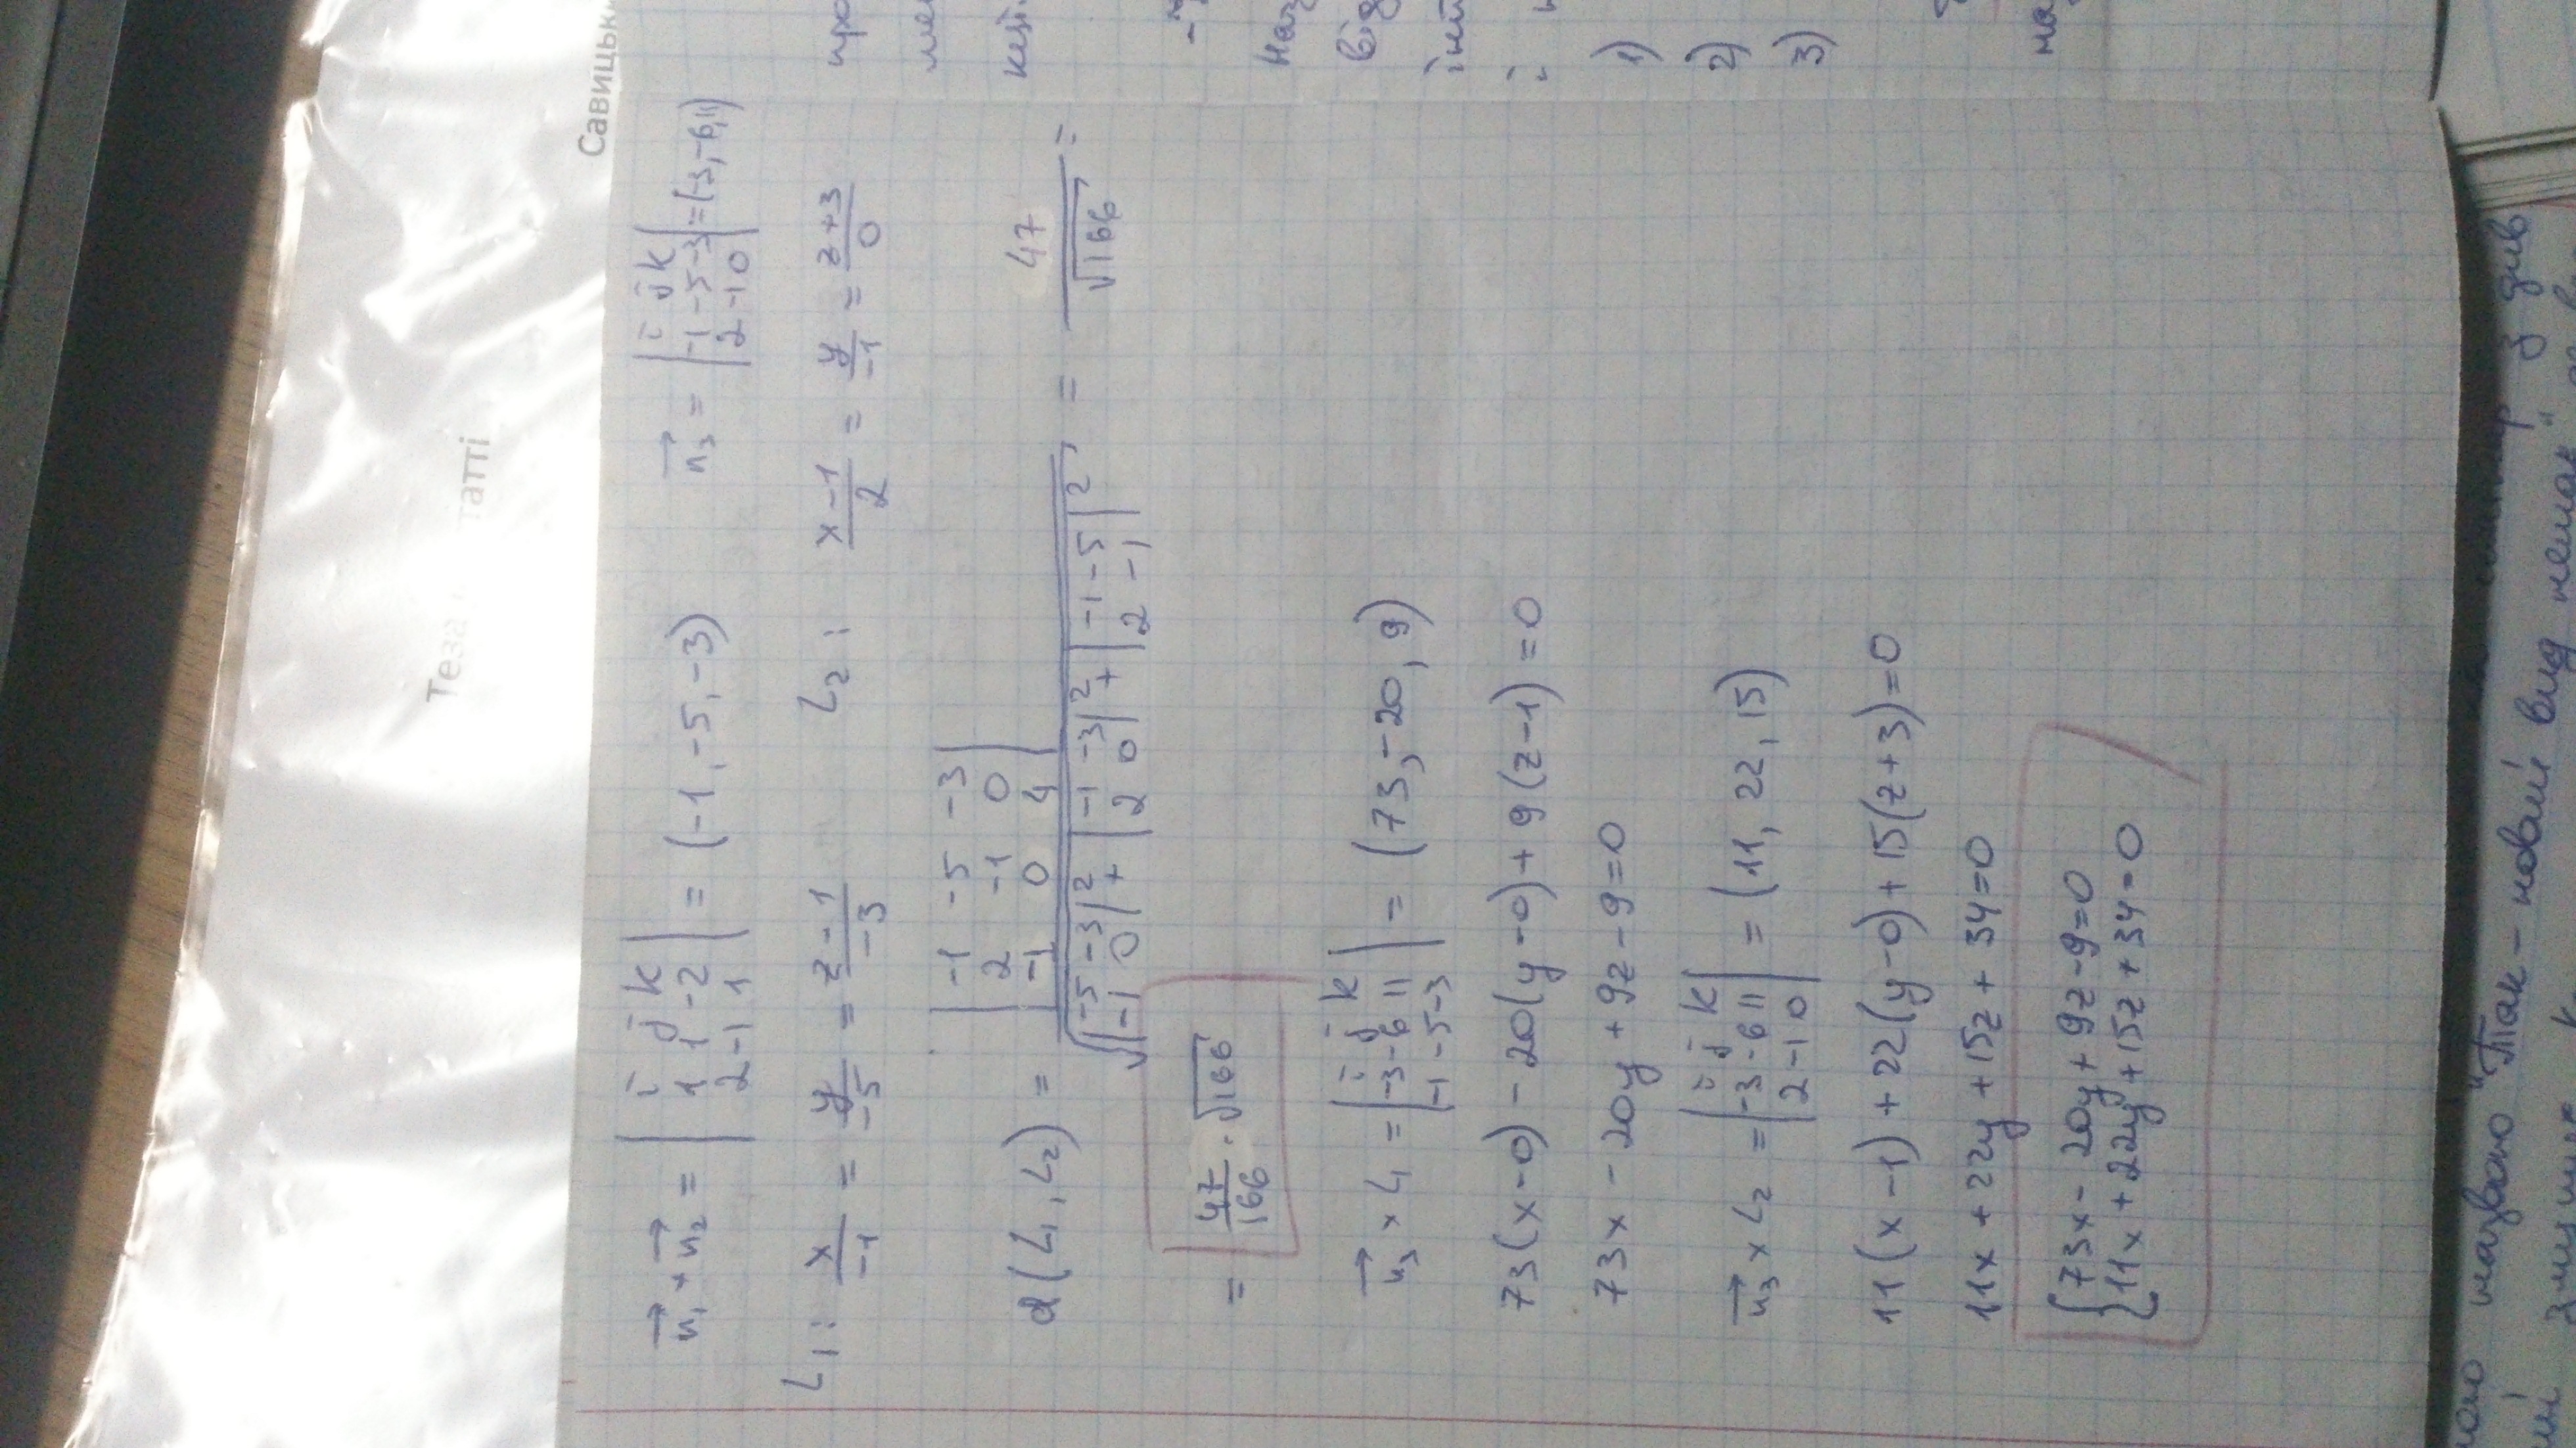 Теза татті
Савицьк
n₁ × n₂ = | i j k ; 1 1 -2 ; 2 -1 1 | = (-1, -5, -3) n₃ = | i j k ; -1 -5 -3 ; 2 -1 0 | = (-3, -6, 11)
L₁: x/-1 = y/-5 = z-1/-3 L₂: x-1/2 = y/-1 = z+3/0
d(L₁, L₂) = | -1 -5 -3 ; 2 -1 0 ; -1 0 4 | / √(| -5 -3 ; -1 0 |² + | -1 -3 ; 2 0 |² + | -1 -5 ; 2 -1 |²) = 47/√166 =
= 47/166 · √166
n₃ × L₁ = | i j k ; -3 -6 11 ; -1 -5 -3 | = (73, -20, 9)
73(x-0) - 20(y-0) + 9(z-1) = 0
73x - 20y + 9z - 9 = 0
n₃ × L₂ = | i j k ; -3 -6 11 ; 2 -1 0 | = (11, 22, 15)
11(x-1) + 22(y-0) + 15(z+3) = 0
11x + 22y + 15z + 34 = 0
{ 73x - 20y + 9z - 9 = 0
11x + 22y + 15z + 34 = 0
про
Наз
від
і
1)
2)
3)
на
назвою "Так - новий вид немає" з див